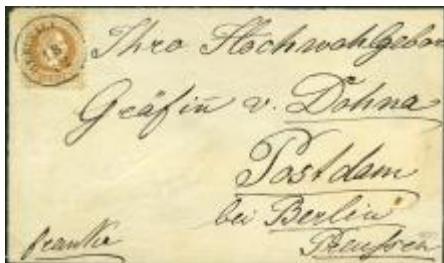 Ihro Hochwohlgebor
Gräfin v. Dohna
Postdam
bei Berlin
Preußen
franko